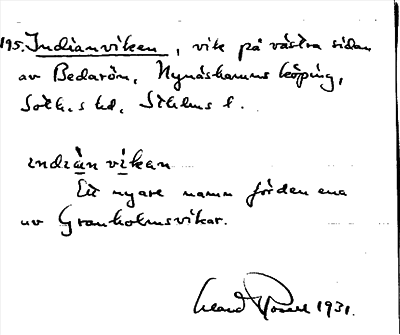 195. Indianviken, vik på västra sidan
av Bedarön, Nynäshamns köping,
Soth.s hd, Sthlms l.
indiän vikan
Ett nyare namn för den ena
av Granholmsvikar.
1931.